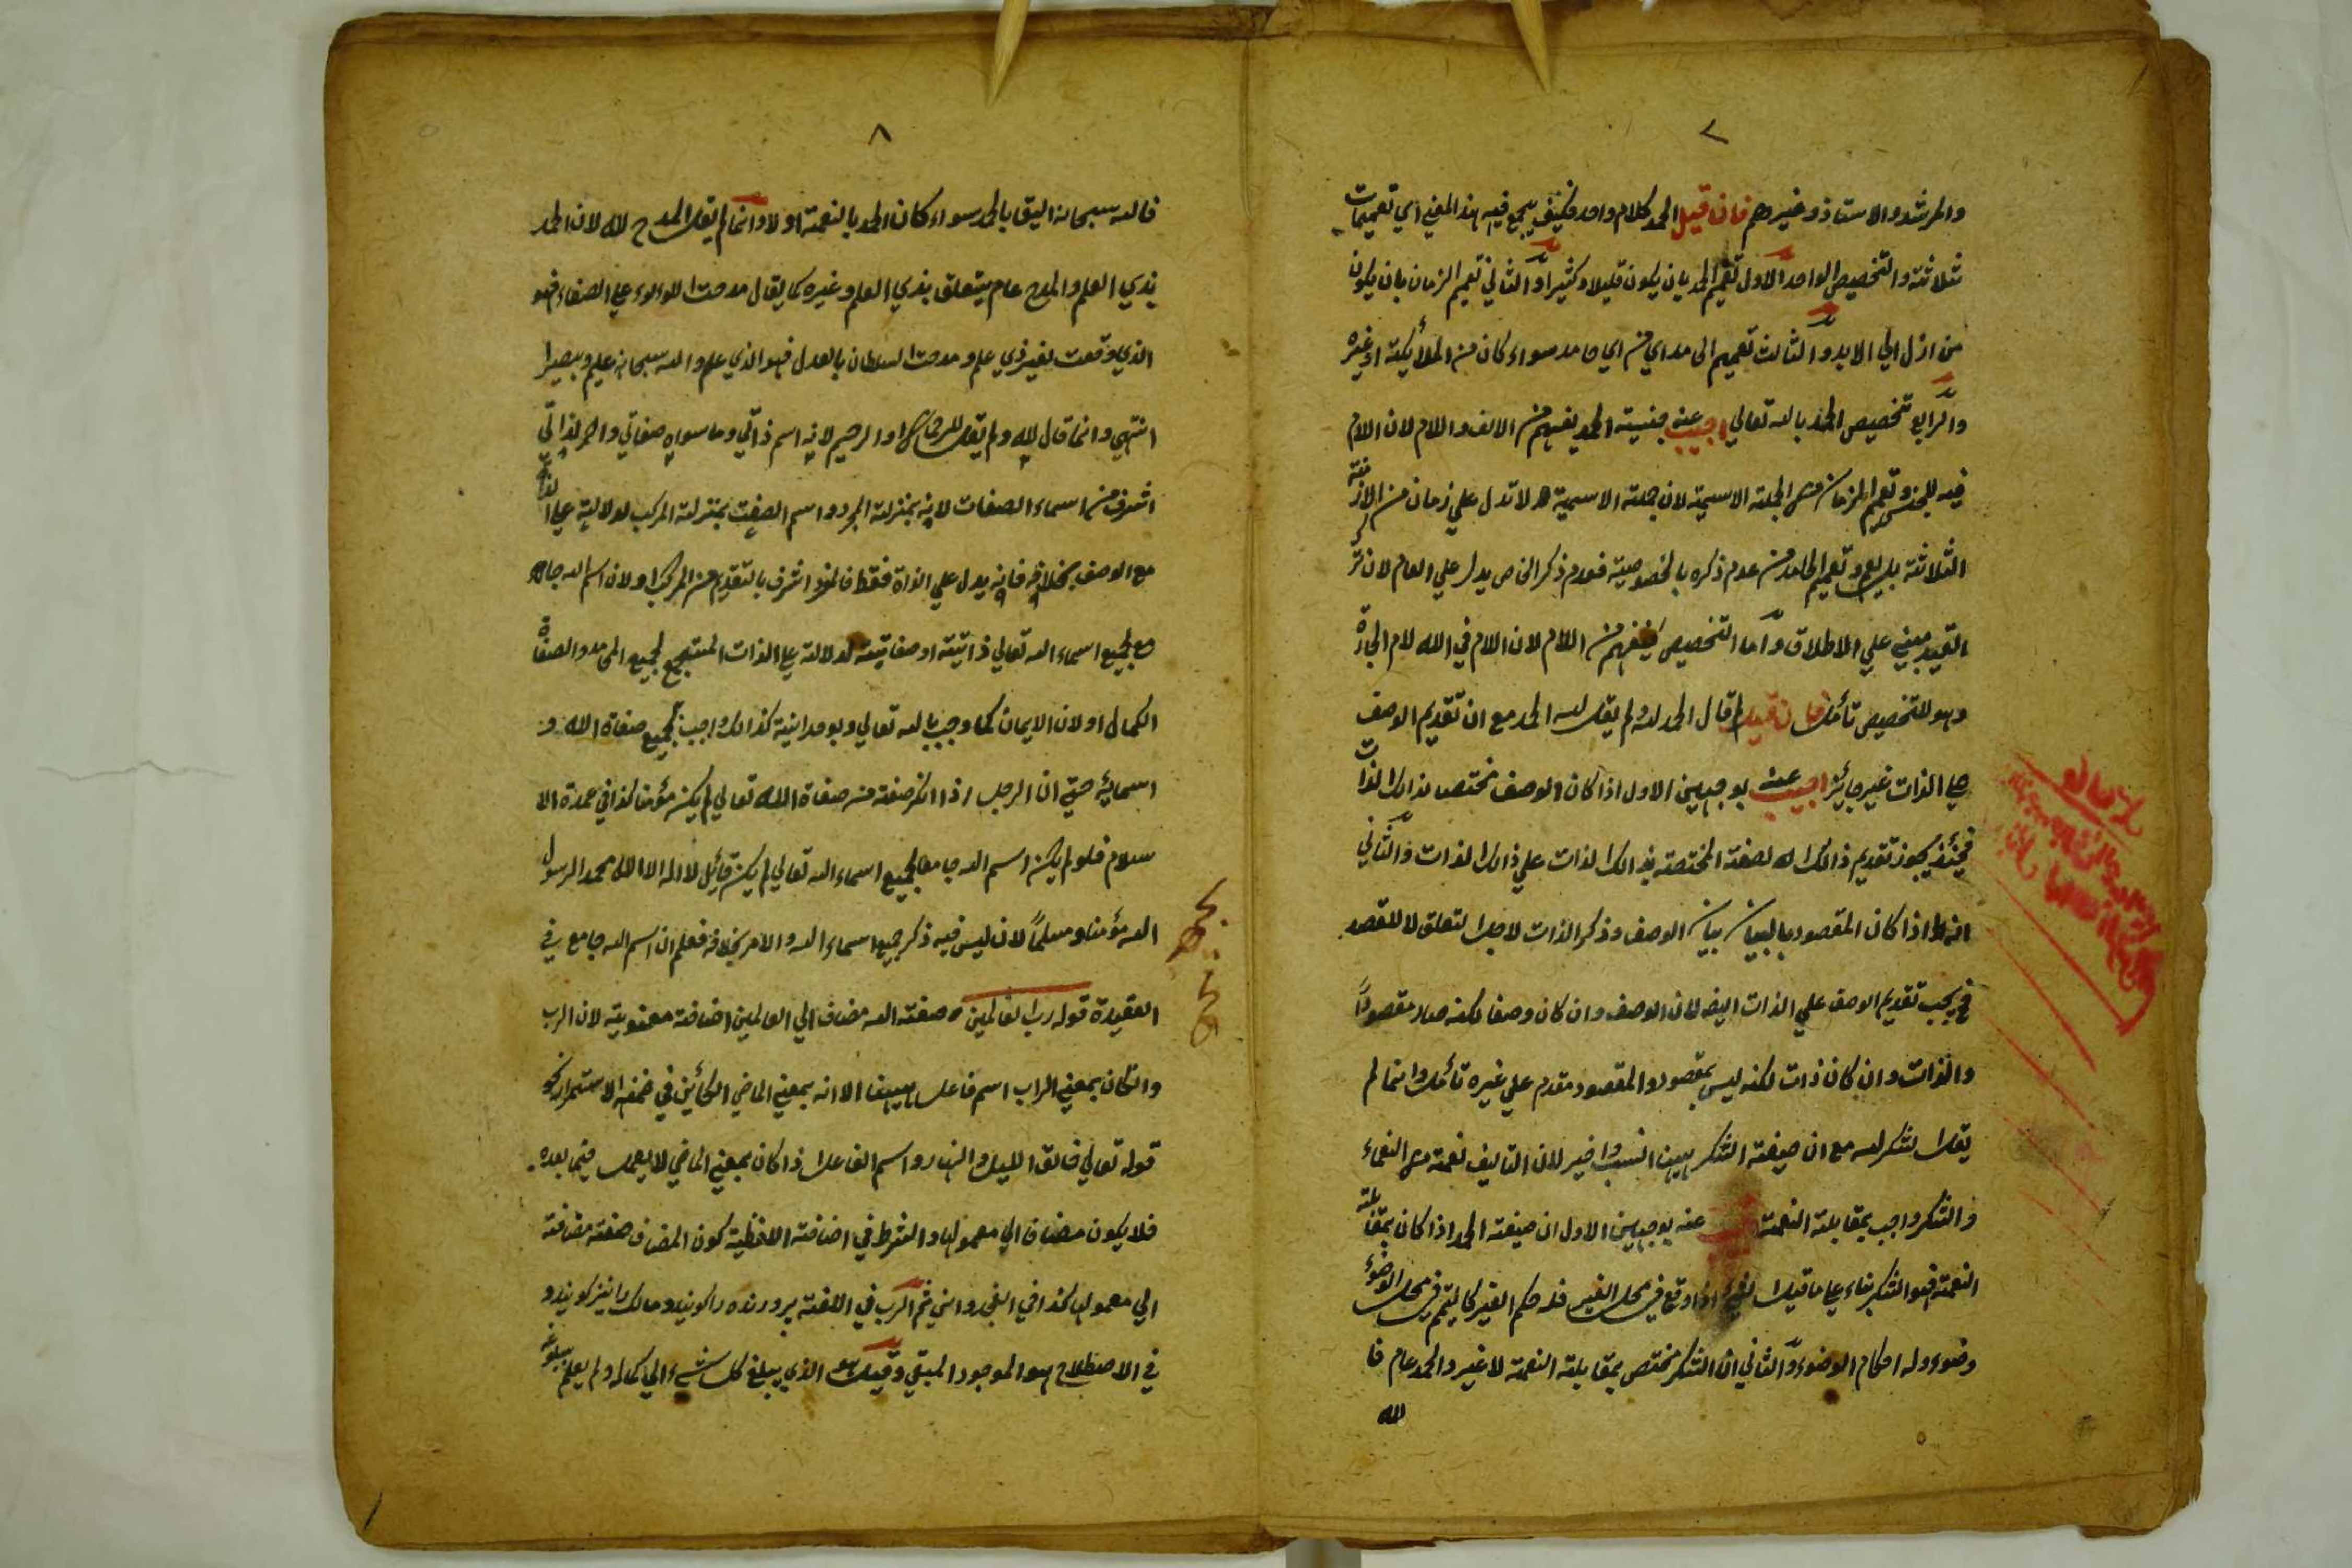 ٧
والمرشد والاستاذ وغيرهم فان قيل الحمد كلام واحد فكيف يجمع فيه هذا المعنى اي تعميمات
ثلاثة والتخصيص الواحد الاول تعميم الحمد بان يكون قليلا وكثيرا والثاني تعميم الزمان بان يكون
من ازل الى الابد والثالث تعميم الحامد اي من اي حامد سواء كان من الملائكة او غيره
والرابع تخصيص الحمد بالله تعالى اجيب عنه جنسية الحمد يفهم من الالف واللام لان اللام
فيه للجنس وتعميم الزمان من الجملة الاسمية لان جملة الاسمية لا تدل على زمان من الازمنة
الثلاثة وتعميم الحامد من عدم ذكره بالخصوصية فعدم ذكر الخاص يدل على العام لان ترك
القيد مبني على الاطلاق واما التخصيص فيفهم من اللام لان اللام في الله لام الجارة
وهو للتخصيص تأمل فان قيل لم قال الحمد لله ولم يقل لله الحمد مع ان تقديم الوصف
على الذات غير جائز اجيب عنه بوجهين الاول اذا كان الوصف مختص بذالك الذات
فحينئذ يجوز تقديم ذالك الصفة المختصة بذالك الذات على ذالك الذات والثاني
انه اذا كان المقصود بالبيان بيان الوصف وذكر الذات لاجل التعلق لا للقصد
فح يجب تقديم الوصف على الذات ايضا لان الوصف وان كان وصفا لكنه صار مقصوداً
والذات وان كان ذات لكنه ليس بمقصود والمقصود مقدم على غيره تأمل وانما لم
يقل الشكر لله مع ان صيغة الشكر ههنا انسب واخير لان التاليف نعمة من النعماء
والشكر واجب بمقابلة النعمة اجيب عنه بوجهين الاول ان صيغة الحمد اذا كان بمقابلة
النعمة فهو الشكر بناء على ما قيل الشيء اذا وقع في محل الغير فله حكم الغير كالتيمم في محل الوضوء
وضوء وله احكام الوضوء والثاني ان الشكر مختص بمقابلة النعمة لا غير والحمد عام فا
لله
٨
فالله سبحانه اليق بالحمد سواء كان الحمد بالنعمة او لا وانما لم يقل المدح لله لان الحمد
بذي العلم والمدح عام يتعلق بذي العلم وغيره كما يقال مدحت اللوءلوء على الصفاء فهو
الذي وقعت بغير ذي علم ومدحت السلطان بالعدل فهو الذي علم والله سبحانه عليم وبصيرا
انتهى وانما قال لله ولم يقل للرحمن او الرحيم لانه اسم ذاتي وما سواه صفاتي واسم الذاتي
اشرف من اسماء الصفات لانه بمنزلة المجرد واسم الصفت بمنزلة المركب لدلالته على الذات
مع الوصف بخلافه فانه يدل على الذاة فقط فالمفرد اشرف بالتقديم من المركب او لان اسم الله جامع
مع لجميع اسماء الله تعالى ذاتية او صفاتية لدلالته على الذات المستجمع لجميع المحامد والصفاة
الكمال او لان الايمان كما وجب بالله تعالى وبوحدانية كذالك واجب بجميع صفاة الله و
اسمائه حتى ان الرجل اذا انكر صفة من صفاة الله تعالى لم يكن مؤمنا كذا في عمدة الا
سلام فلو لم يكن اسم الله جامعا لجميع اسماء الله تعالى لم يكن قائل لا اله الا الله محمد الرسول
الله مؤمنا ومسلماً لان ليس فيه ذكر جميع اسماء الله والامر بخلافه فعلم ان اسم الله جامع في
العقيدة قوله رب العالمين صفته الله مضاف الى العالمين اضافة معنوية لان الرب
والكان بمعنى الراب اسم فاعل ههنا الا انه بمعنى الماضي الكائن في ضمن الاستمرار كما
قوله تعالى فالق الليل والنهار واسم الفاعل اذا كان بمعنى الماضي لا يعمل فيما بعده
فلا يكون مضاف الى معمولها والشرط في اضافة اللفظية كون المضاف صفة مضافة
الى معمولها كذا في الفجدواني ثم الرب في اللغة پرورنده را گویند و مالک را نیز گویند و
في الاصطلاح هو الموجود المبقي وقيل هو الذي يبلغ كل شيء الى كماله ولم يعلم بلوغه